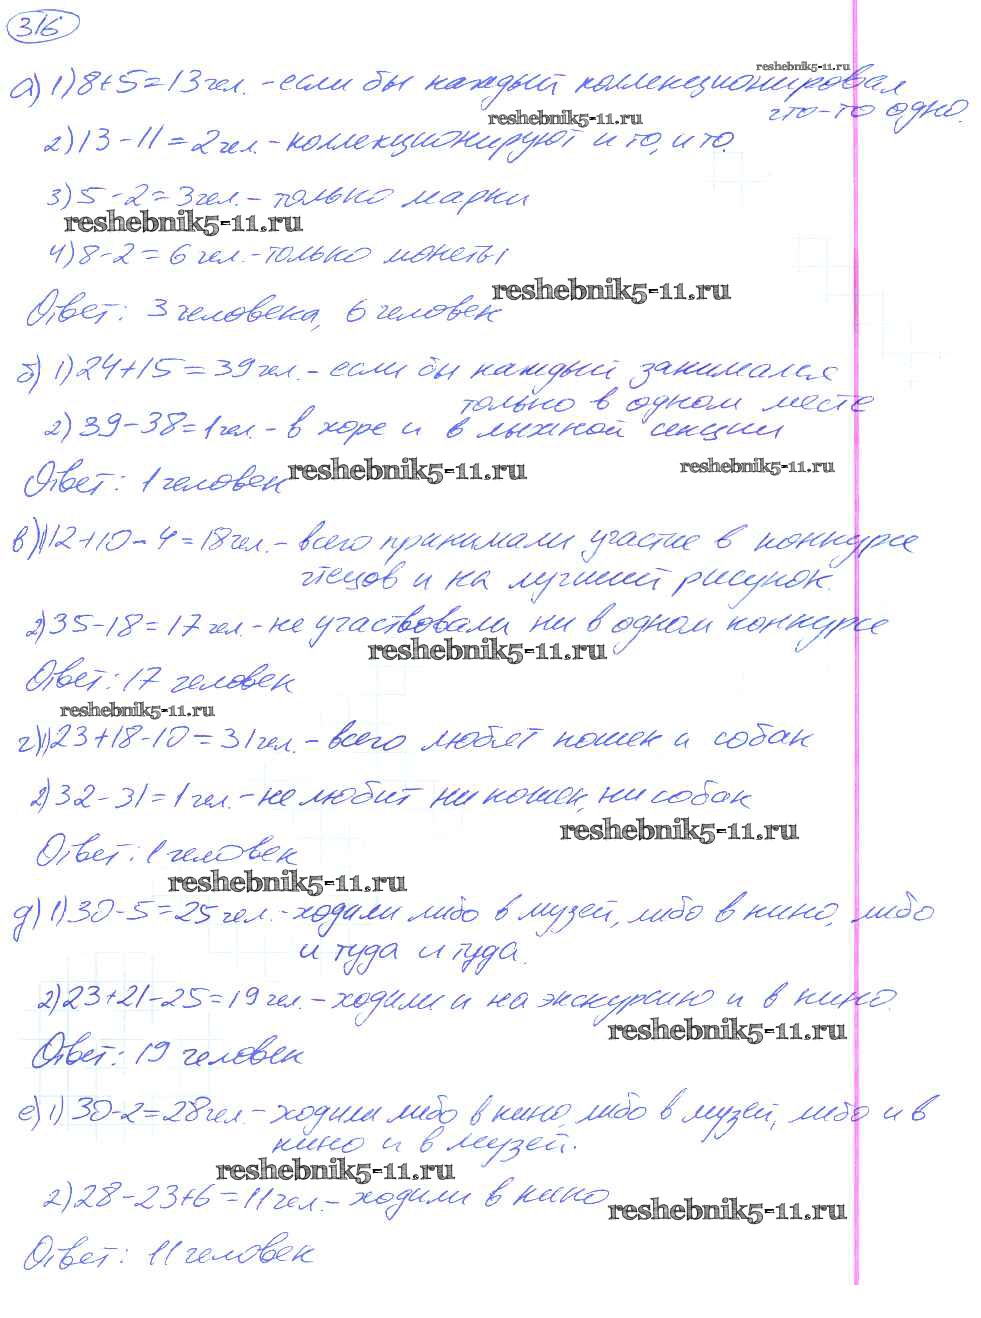 316
reshebnik5-11.ru
а) 1) 8+5=13 чел. - если бы каждый коллекционировал
что-то одно.
reshebnik5-11.ru
2) 13-11=2 чел. - коллекционируют и то, и то.
3) 5-2=3 чел. - только марки
reshebnik5-11.ru
4) 8-2=6 чел. - только монеты
reshebnik5-11.ru
Ответ: 3 человека, 6 человек
б) 1) 24+15=39 чел. - если бы каждый занимался
только в одном месте
2) 39-38=1 чел. - в хоре и в лыжной секции
reshebnik5-11.ru
reshebnik5-11.ru
Ответ: 1 человек
в) 1) 12+10-4=18 чел. - всего принимали участие в конкурсе
чтецов и на лучший рисунок.
2) 35-18=17 чел. - не участвовали ни в одном конкурсе
reshebnik5-11.ru
Ответ: 17 человек
reshebnik5-11.ru
г) 1) 23+18-10=31 чел. - всего любят кошек и собак
2) 32-31=1 чел. - не любит ни кошек, ни собак
reshebnik5-11.ru
Ответ: 1 человек
reshebnik5-11.ru
д) 1) 30-5=25 чел. - ходили либо в музей, либо в кино, либо
и туда и туда.
2) 23+21-25=19 чел. - ходили и на экскурсию и в кино.
reshebnik5-11.ru
Ответ: 19 человек
е) 1) 30-2=28 чел. - ходили либо в кино, либо в музей, либо и в
кино и в музей.
reshebnik5-11.ru
2) 28-23+6=11 чел. - ходили в кино
reshebnik5-11.ru
Ответ: 11 человек